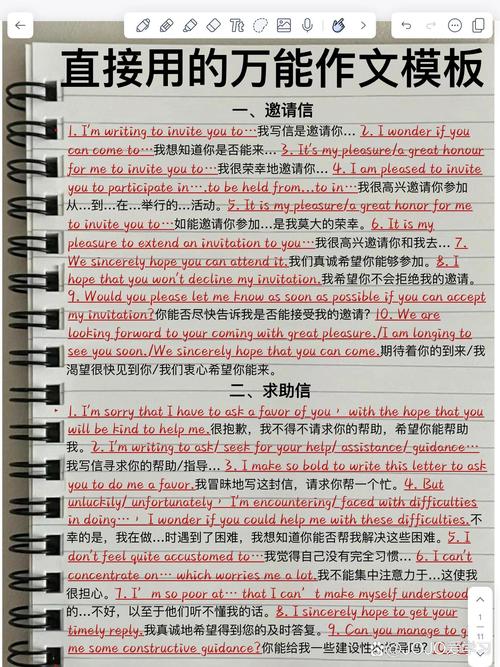 直接用的万能作文模板
一、邀请信
1. I'm writing to invite you to…我写信是邀请你… 2. I wonder if you
can come to…我想知道你是否能来… 3. It's my pleasure/a great honour
for me to invite you to…我很荣幸地邀请你… 4. I am pleased to invite
you to participate in…,to be held from…to in…我很高兴邀请你参加
从…到…在…举行的…活动。5. It is my pleasure/a great honor for me
to invite you to…如能邀请你参加…是我莫大的荣幸。6. It is my
pleasure to extend an invitation to you…我很高兴邀请你和我去… 7.
We sincerely hope you can attend it.我们真诚希望你能够参加。8. I
hope that you won't decline my invitation.我希望你不会拒绝我的邀请。
9. Would you please let me know as soon as possible if you can accept
my invitation?你能否尽快告诉我是否能接受我的邀请? 10. We are
looking forward to your coming with great pleasure./I am longing to
see you soon./We sincerely hope that you can come.期待着你的到来/我
渴望很快见到你/我们衷心希望你能来。
二、求助信
1. I'm sorry that I have to ask a favor of you, with the hope that you
will be kind to help me.很抱歉，我不得不请求你的帮助，希望你能帮助
我。2. I'm writing to ask/ seek for your help/ assistance/ guidance…
我写信寻求你的帮助/指导… 3. I make so bold to write this letter to ask
you to do me a favor.我冒昧地写这封信，请求你帮一个忙。4. But
unluckily/ unfortunately, I'm encountering/ faced with difficulties
in doing…, I wonder if you could help me with these difficulties.不
幸的是，我在做…时遇到了困难，我想知道你能否帮我解决这些困难。5. I
don't feel quite accustomed to…我觉得自己没有完全习惯… 6. I can't
concentrate on… which worries me a lot.我不能集中注意力于…这使我
很担心。7. I'm so poor at… that I can't make myself understood
的…不好，以至于他们听不懂我的话。8. I sincerely hope to get your
timely reply.我真诚地希望得到您的及时答复。9. Can you manage to g
me some constructive guidance?你能给我一些建设性
1
11